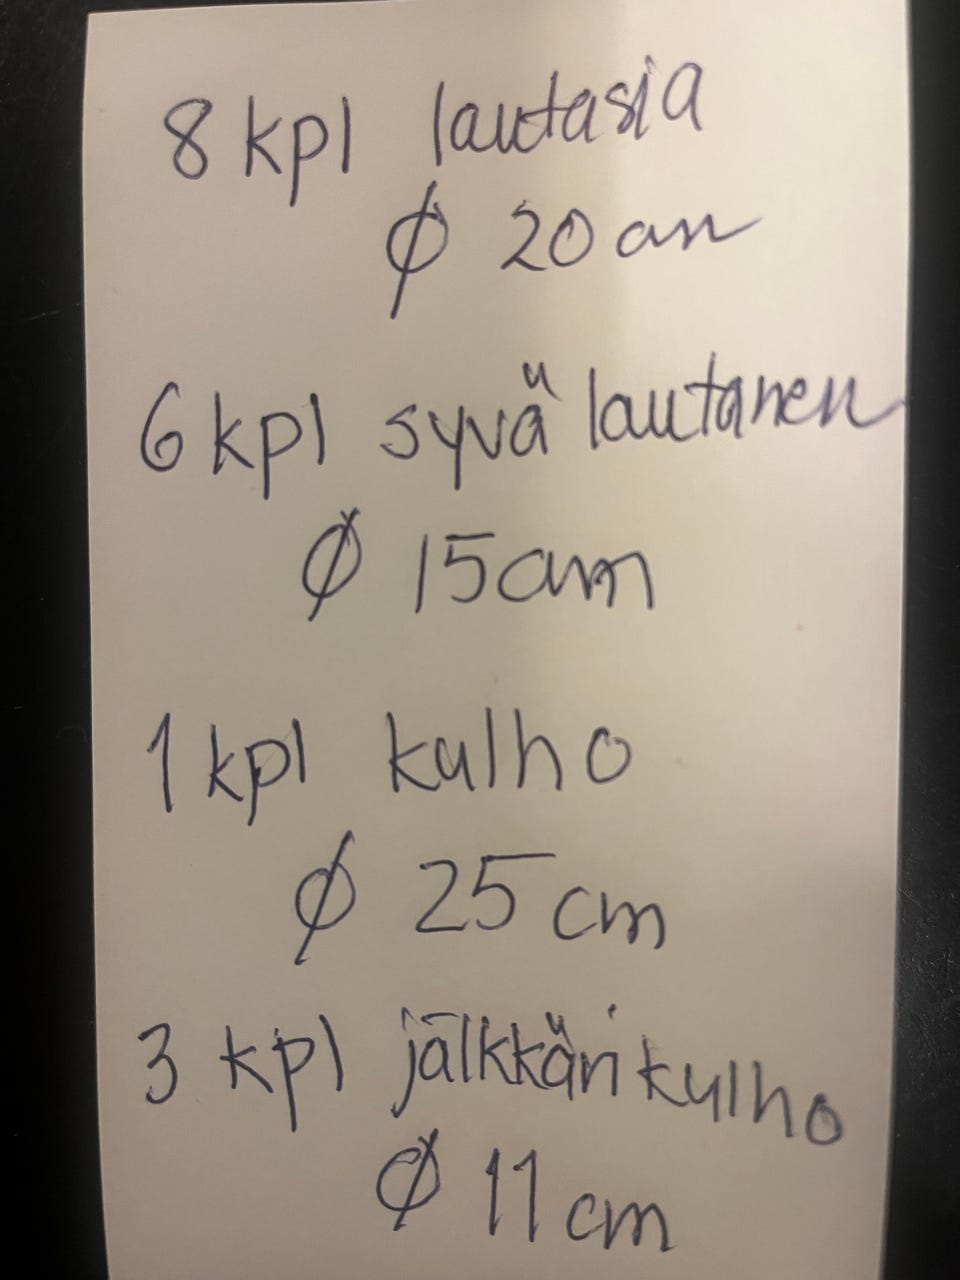 8 kpl lautasia
Ø 20 cm
6 kpl syvä lautanen
Ø 15 cm
1 kpl kulho
Ø 25 cm
3 kpl jälkkäri kulho
Ø 11 cm